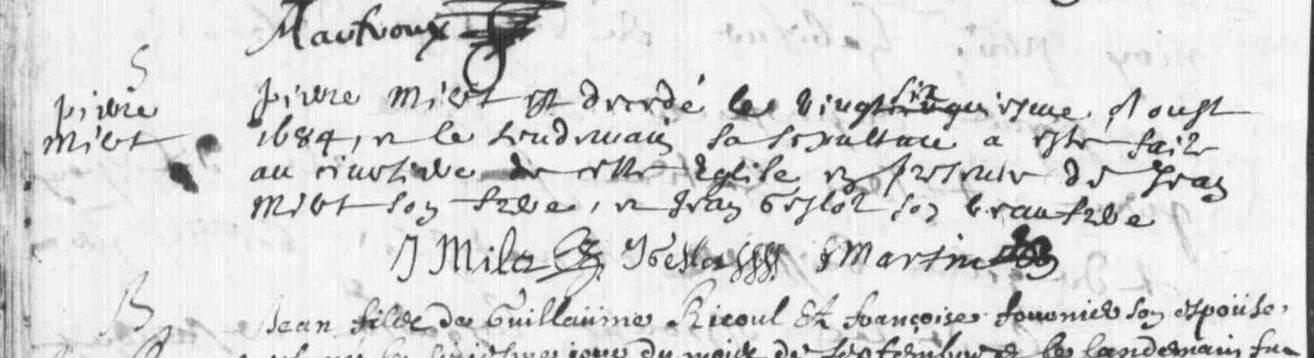 S
pierre
Milet
pierre Milet est decedé le vingt six aoust
1684, et le lendemain sa sepulture a esté faite
au cimetiere de cette Eglise en presence de Jean
Milet son frere, et Jean Geslot son beau frere
J Milet JGeslot Martin
B
Jean filz de Guillaume Ricoul Et françoise son espouse,
jour du mois de septembre le landemain fu